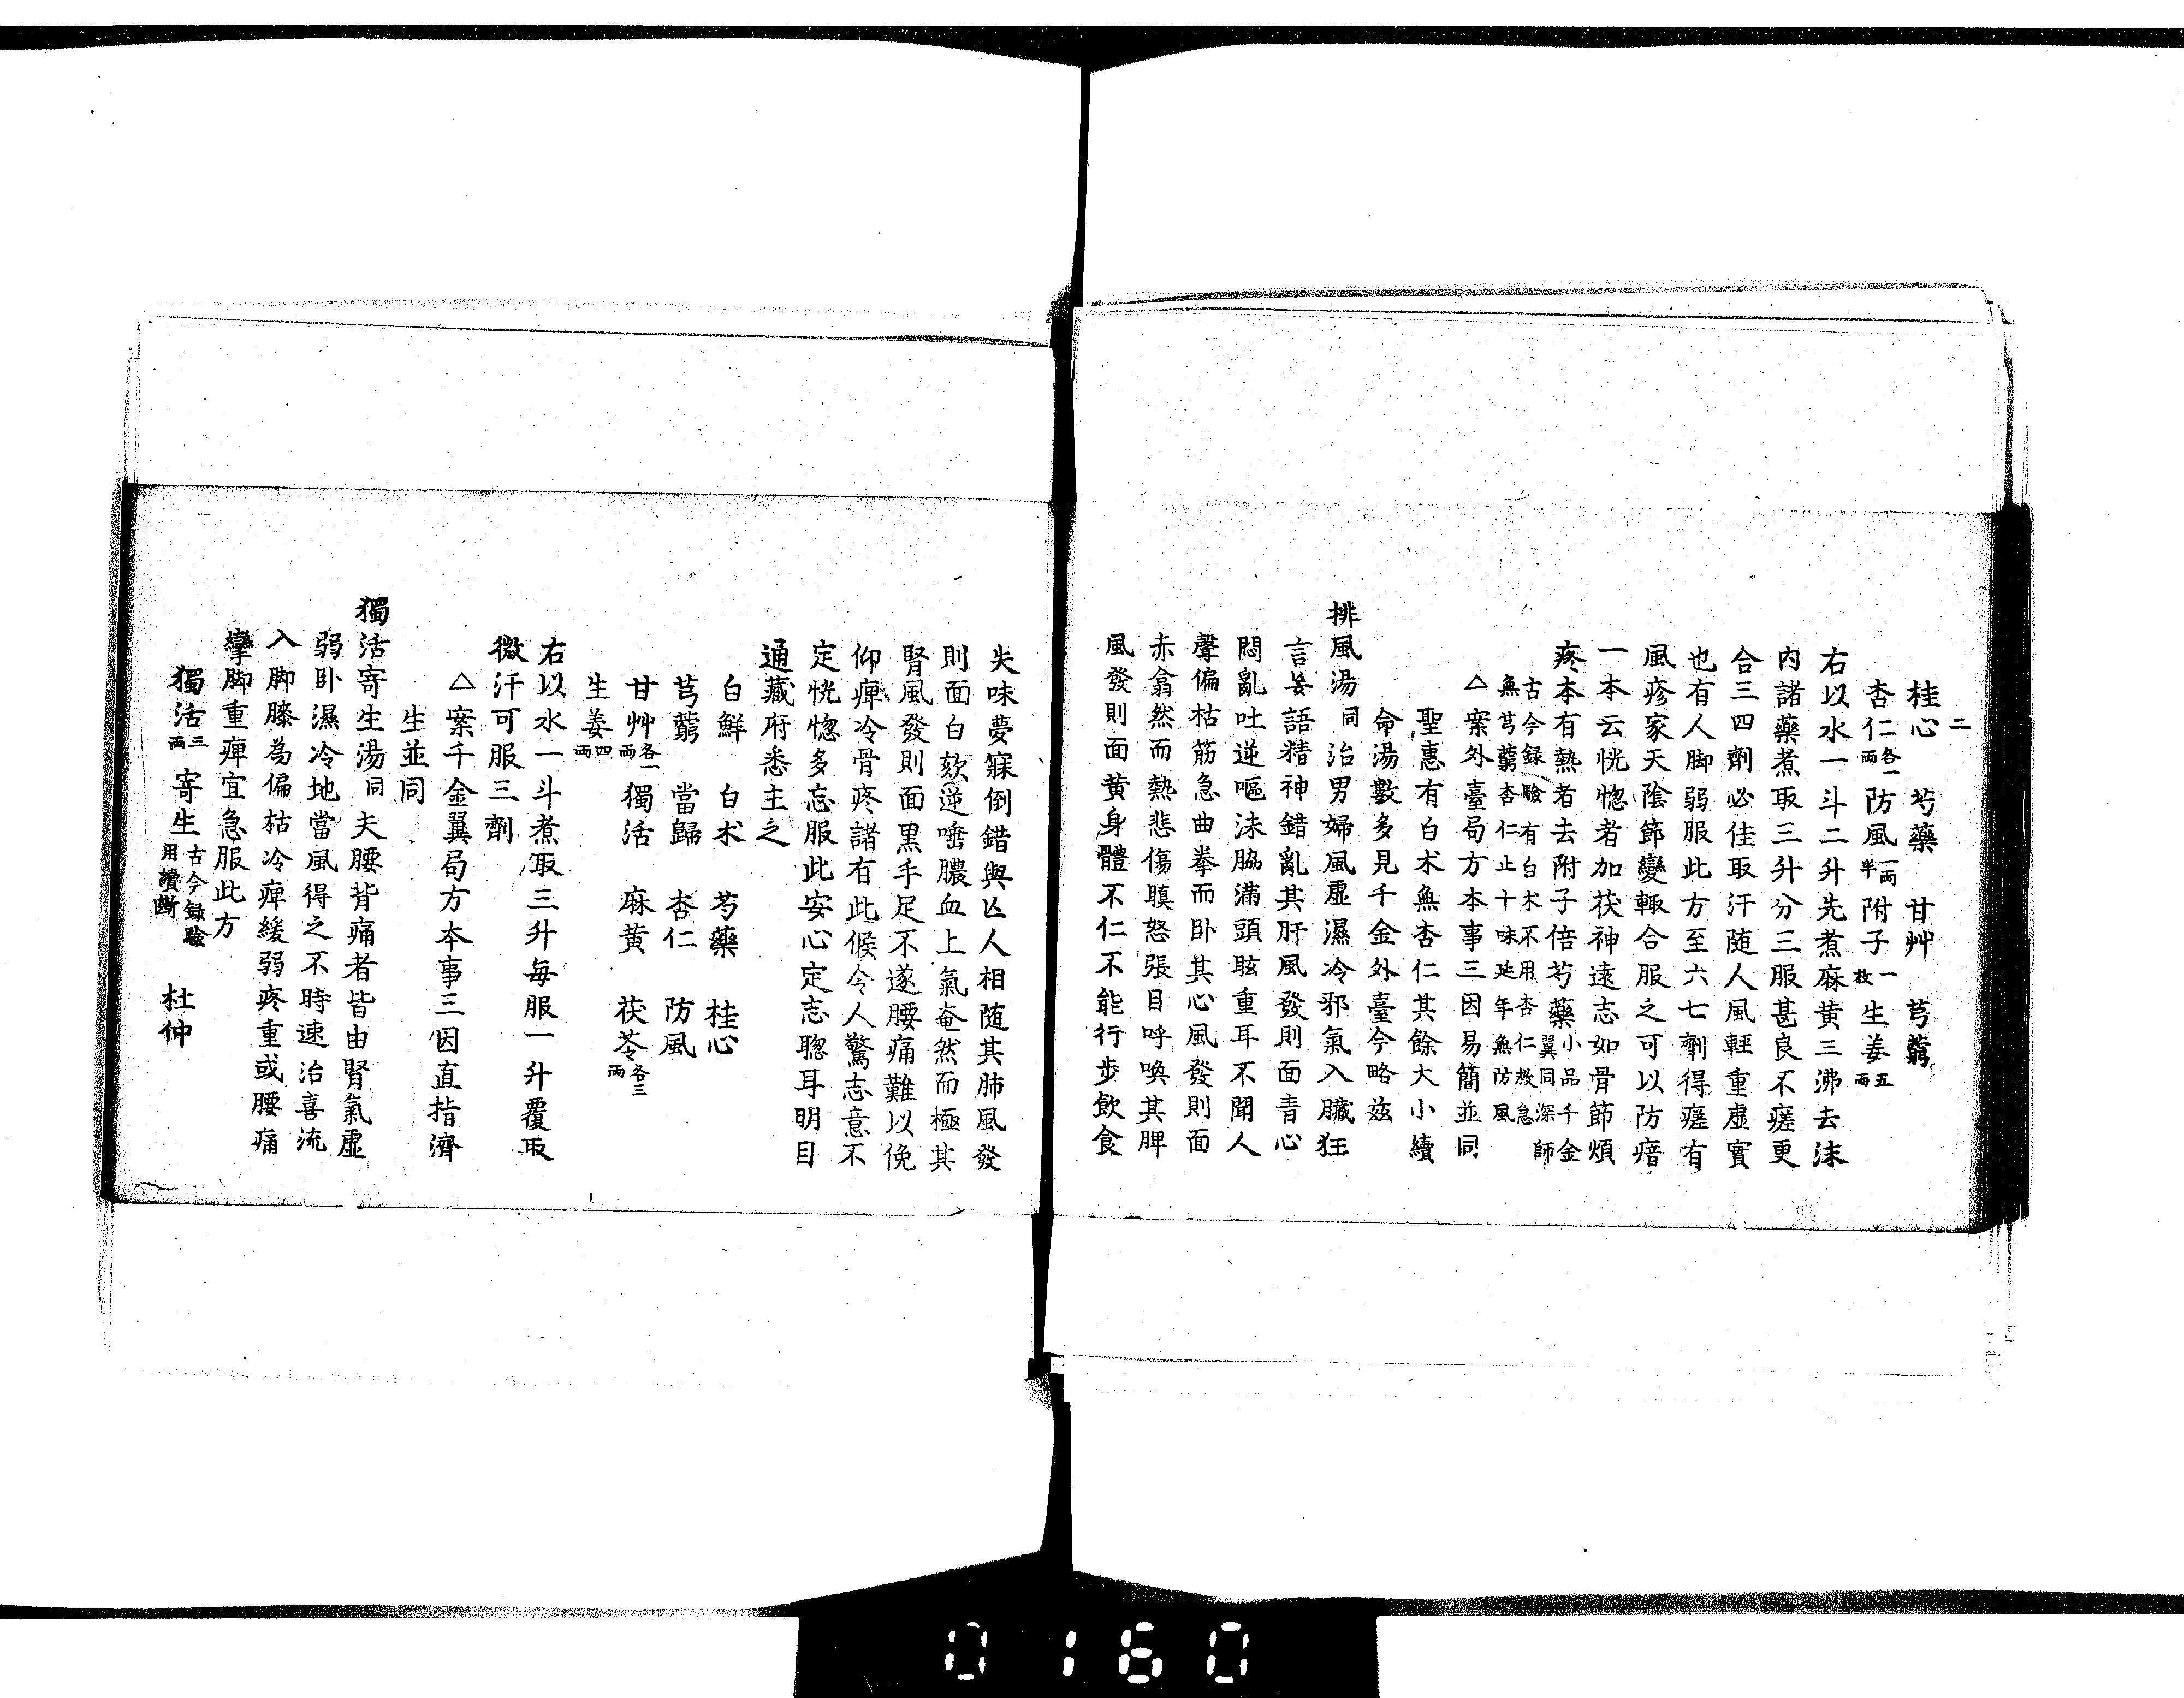 二
桂心　芍藥　甘艸　芎藭
杏仁各一兩　防風一兩半　附子一枚　生姜五兩
右以水一斗二升先煮麻黄三沸去沫
内諸藥煮取三升分三服甚良不瘥更
合三四劑必佳取汗随人風輕重虚實
也有人脚弱服此方至六七劑得瘥有
風疹家天陰節變輒合服之可以防瘖
一本云恍惚者加茯神遠志如骨節煩
疼本有熱者去附子倍芍藥小品千金翼同深師
古今録驗有白朮不用杏仁救急無芎藭杏仁止十味延年無防風
△案外臺局方本事三因易簡並同
聖惠有白朮無杏仁其餘大小續
命湯數多見千金外臺今略茲
排風湯同　治男婦風虚濕冷邪氣入臟狂
言妄語精神錯亂其肝風發則面青心
悶亂吐逆嘔沫脇滿頭眩重耳不聞人
聲偏枯筋急曲拳而卧其心風發則面
赤翕然而熱悲傷瞋怒張目呼喚其脾
風發則面黄身體不仁不能行步飲食
失味夢寐倒錯與亾人相随其肺風發
則面白欬逆唾膿血上氣奄然而極其
腎風發則面黒手足不遂腰痛難以俛
仰痺冷骨疼諸有此候令人驚志意不
定恍惚多忘服此安心定志聰耳明目
通藏府悉主之
白鮮　白朮　芍藥　桂心
芎藭　當歸　杏仁　防風
甘艸各一兩　獨活　麻黄　茯苓各三兩
生姜四兩
右以水一斗煮取三升毎服一升覆取
微汗可服三劑
△案千金翼局方本事三因直指濟
生並同
獨活寄生湯同　夫腰背痛者皆由腎氣虚
弱卧濕冷地當風得之不時速治喜流
入脚膝為偏枯冷痺緩弱疼重或腰痛
攣脚重痺宜急服此方
獨活三兩　寄生古今録驗用續斷　杜仲
0160